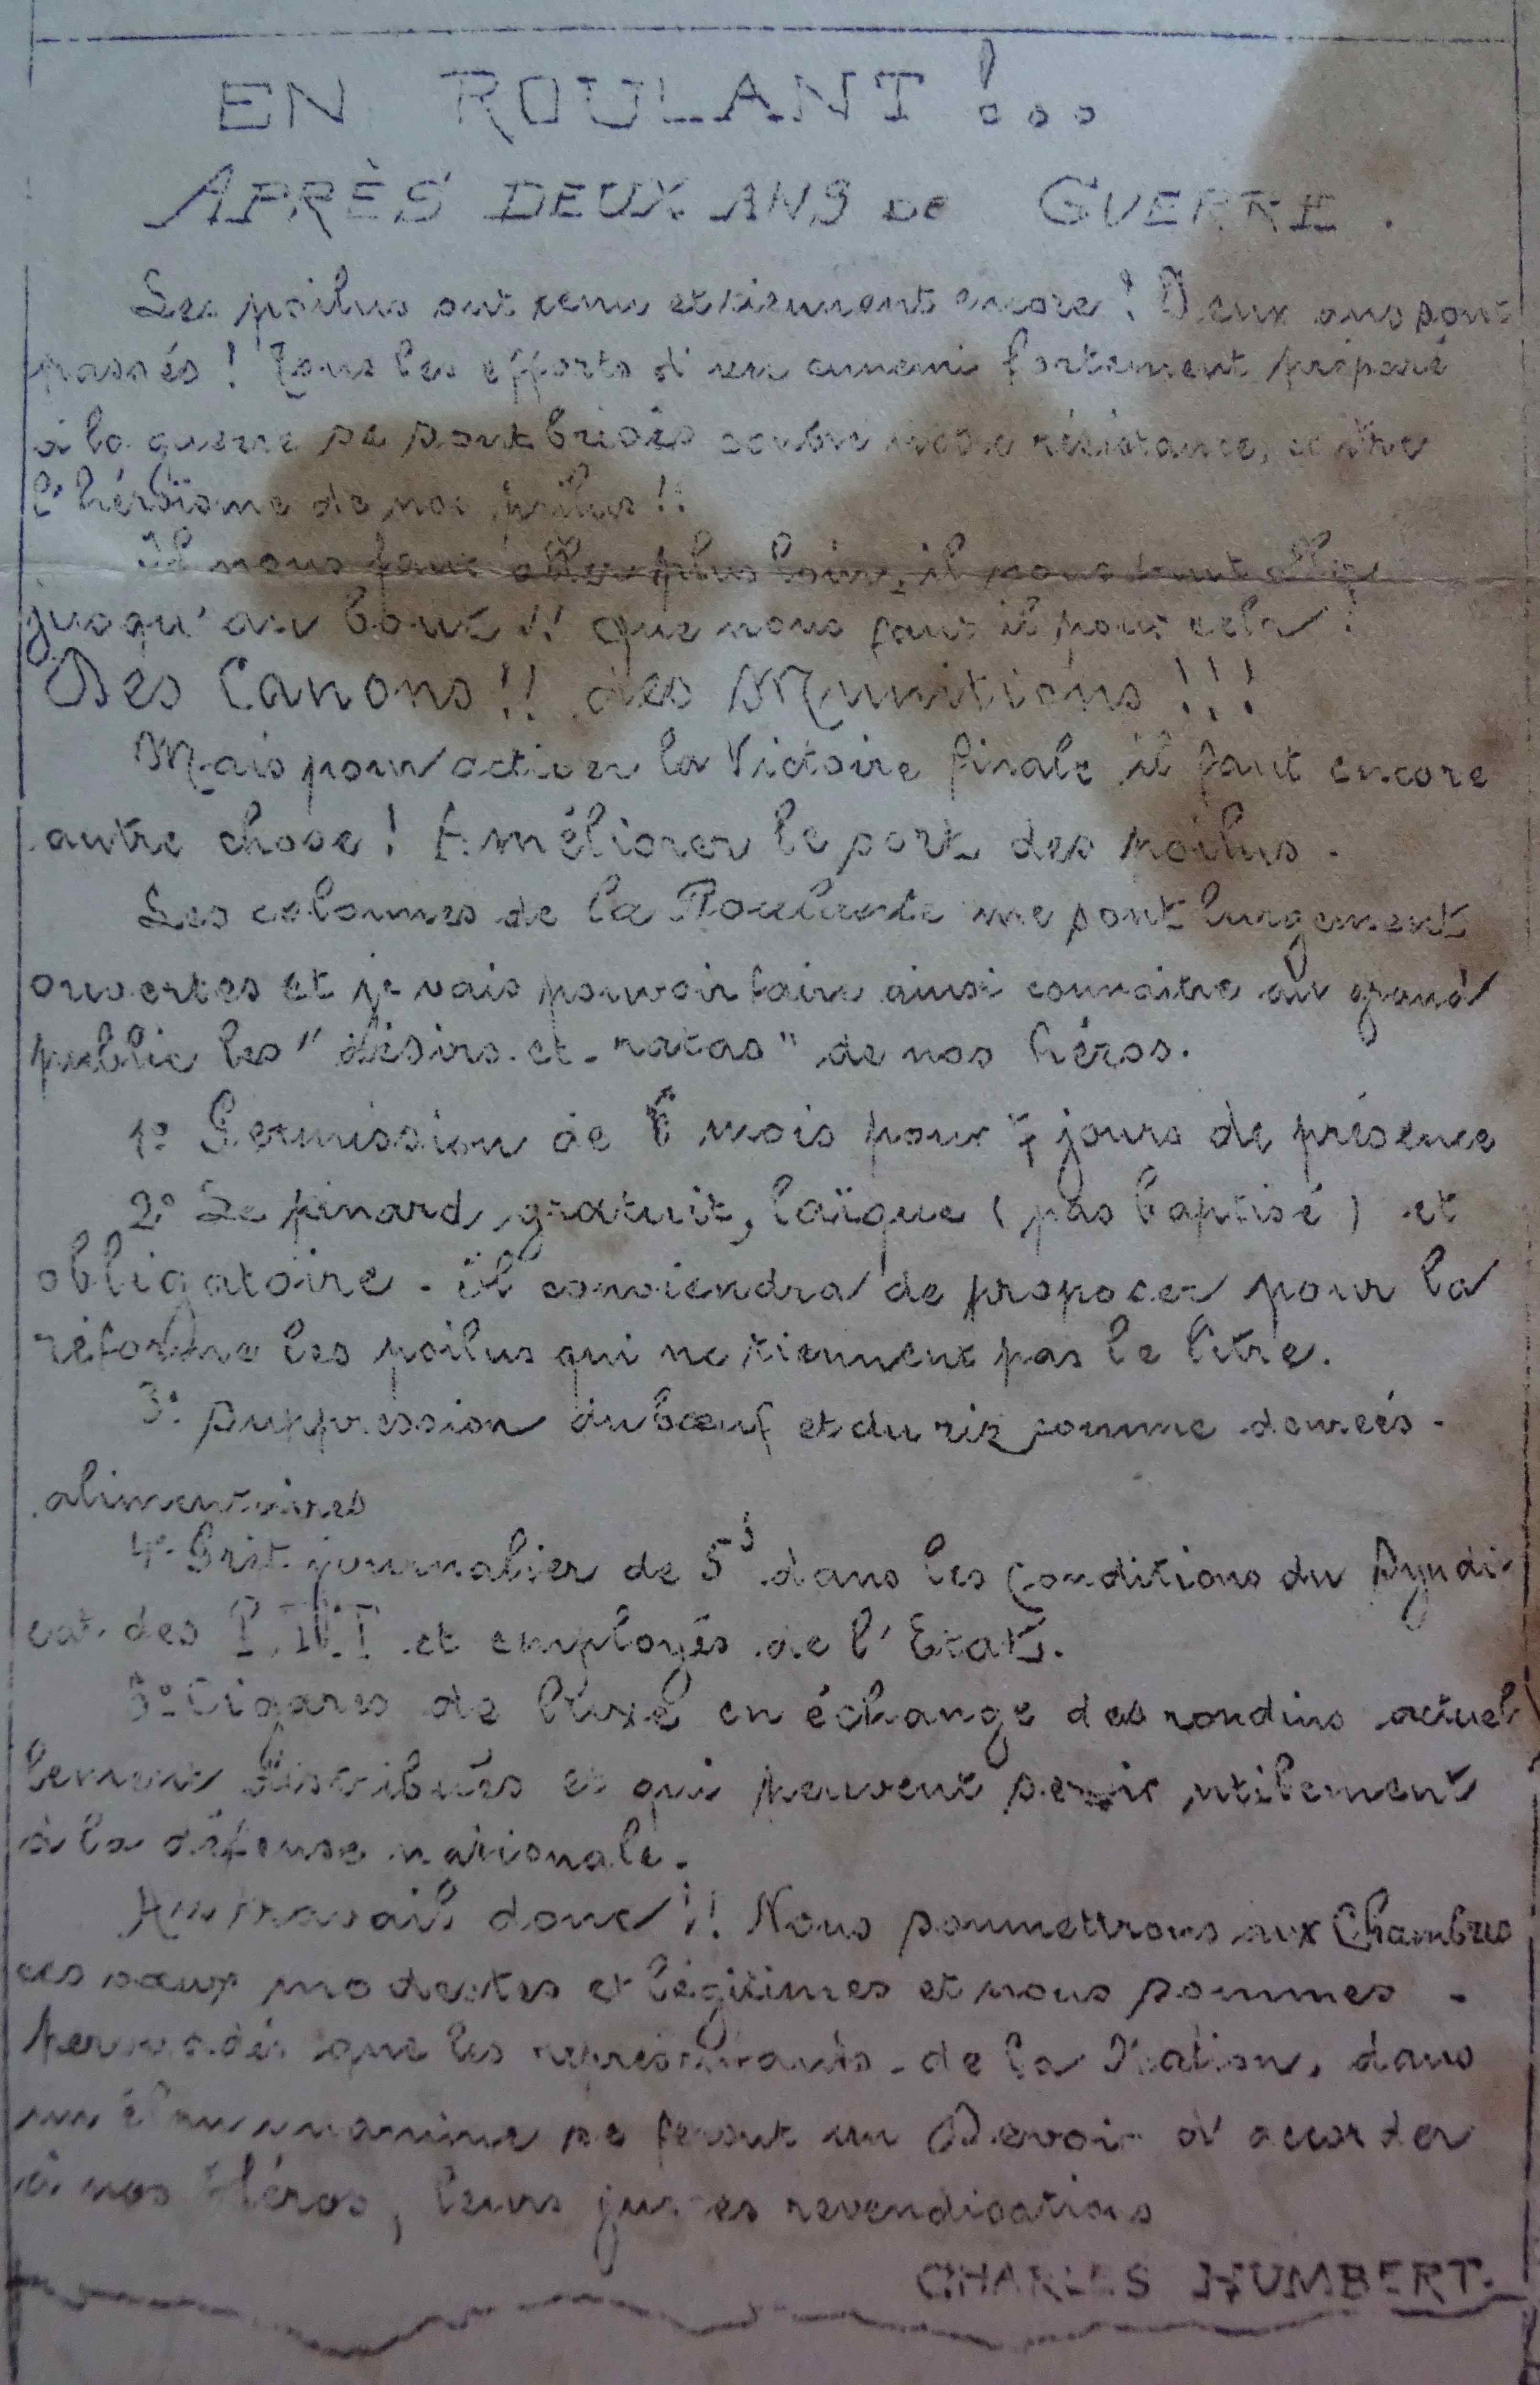 EN ROULANT !...
APRÈS DEUX ANS DE GUERRE.
Les poilus ont tenu et tiennent encore ! Deux ans sont
passés ! Tous les efforts d'un ennemi fortement préparé
à la guerre se sont brisés contre notre résistance, contre
l'héroïsme de nos poilus !!
Il nous faut aller plus loin, il nous faut aller
jusqu'au bout !! que nous faut il pour cela !
Des Canons !! des Munitions !!!
Mais pour activer la Victoire finale il faut encore
autre chose ! Améliorer le sort des poilus.
Les colonnes de la Roulante me sont largement
ouvertes et je vais pouvoir faire ainsi connaitre au grand
public les "désirs-et-ratas" de nos héros.
1º Permission de 6 mois pour 7 jours de présence
2º Le pinard gratuit, laïque (pas baptisé) et
obligatoire - il conviendra de proposer pour la
réforme les poilus qui ne tiennent pas le litre.
3º suppression du bœuf et du riz comme denrées-
alimentaires
4º Prêt journalier de 5 dans les conditions du Syndi-
cat des P.T.T et employés de l'Etat.
5º Cigares de luxe en échange des rondins actuel
lement distribués et qui peuvent servir utilement
à la défense nationale.
Au travail donc !! Nous soumettrons aux Chambres
ces vœux modestes et légitimes et nous sommes -
persuadés que les représentants de la Nation, dans
un élan unanime se feront un Devoir d'accorder
à nos Héros, leurs justes revendications
CHARLES HUMBERT.